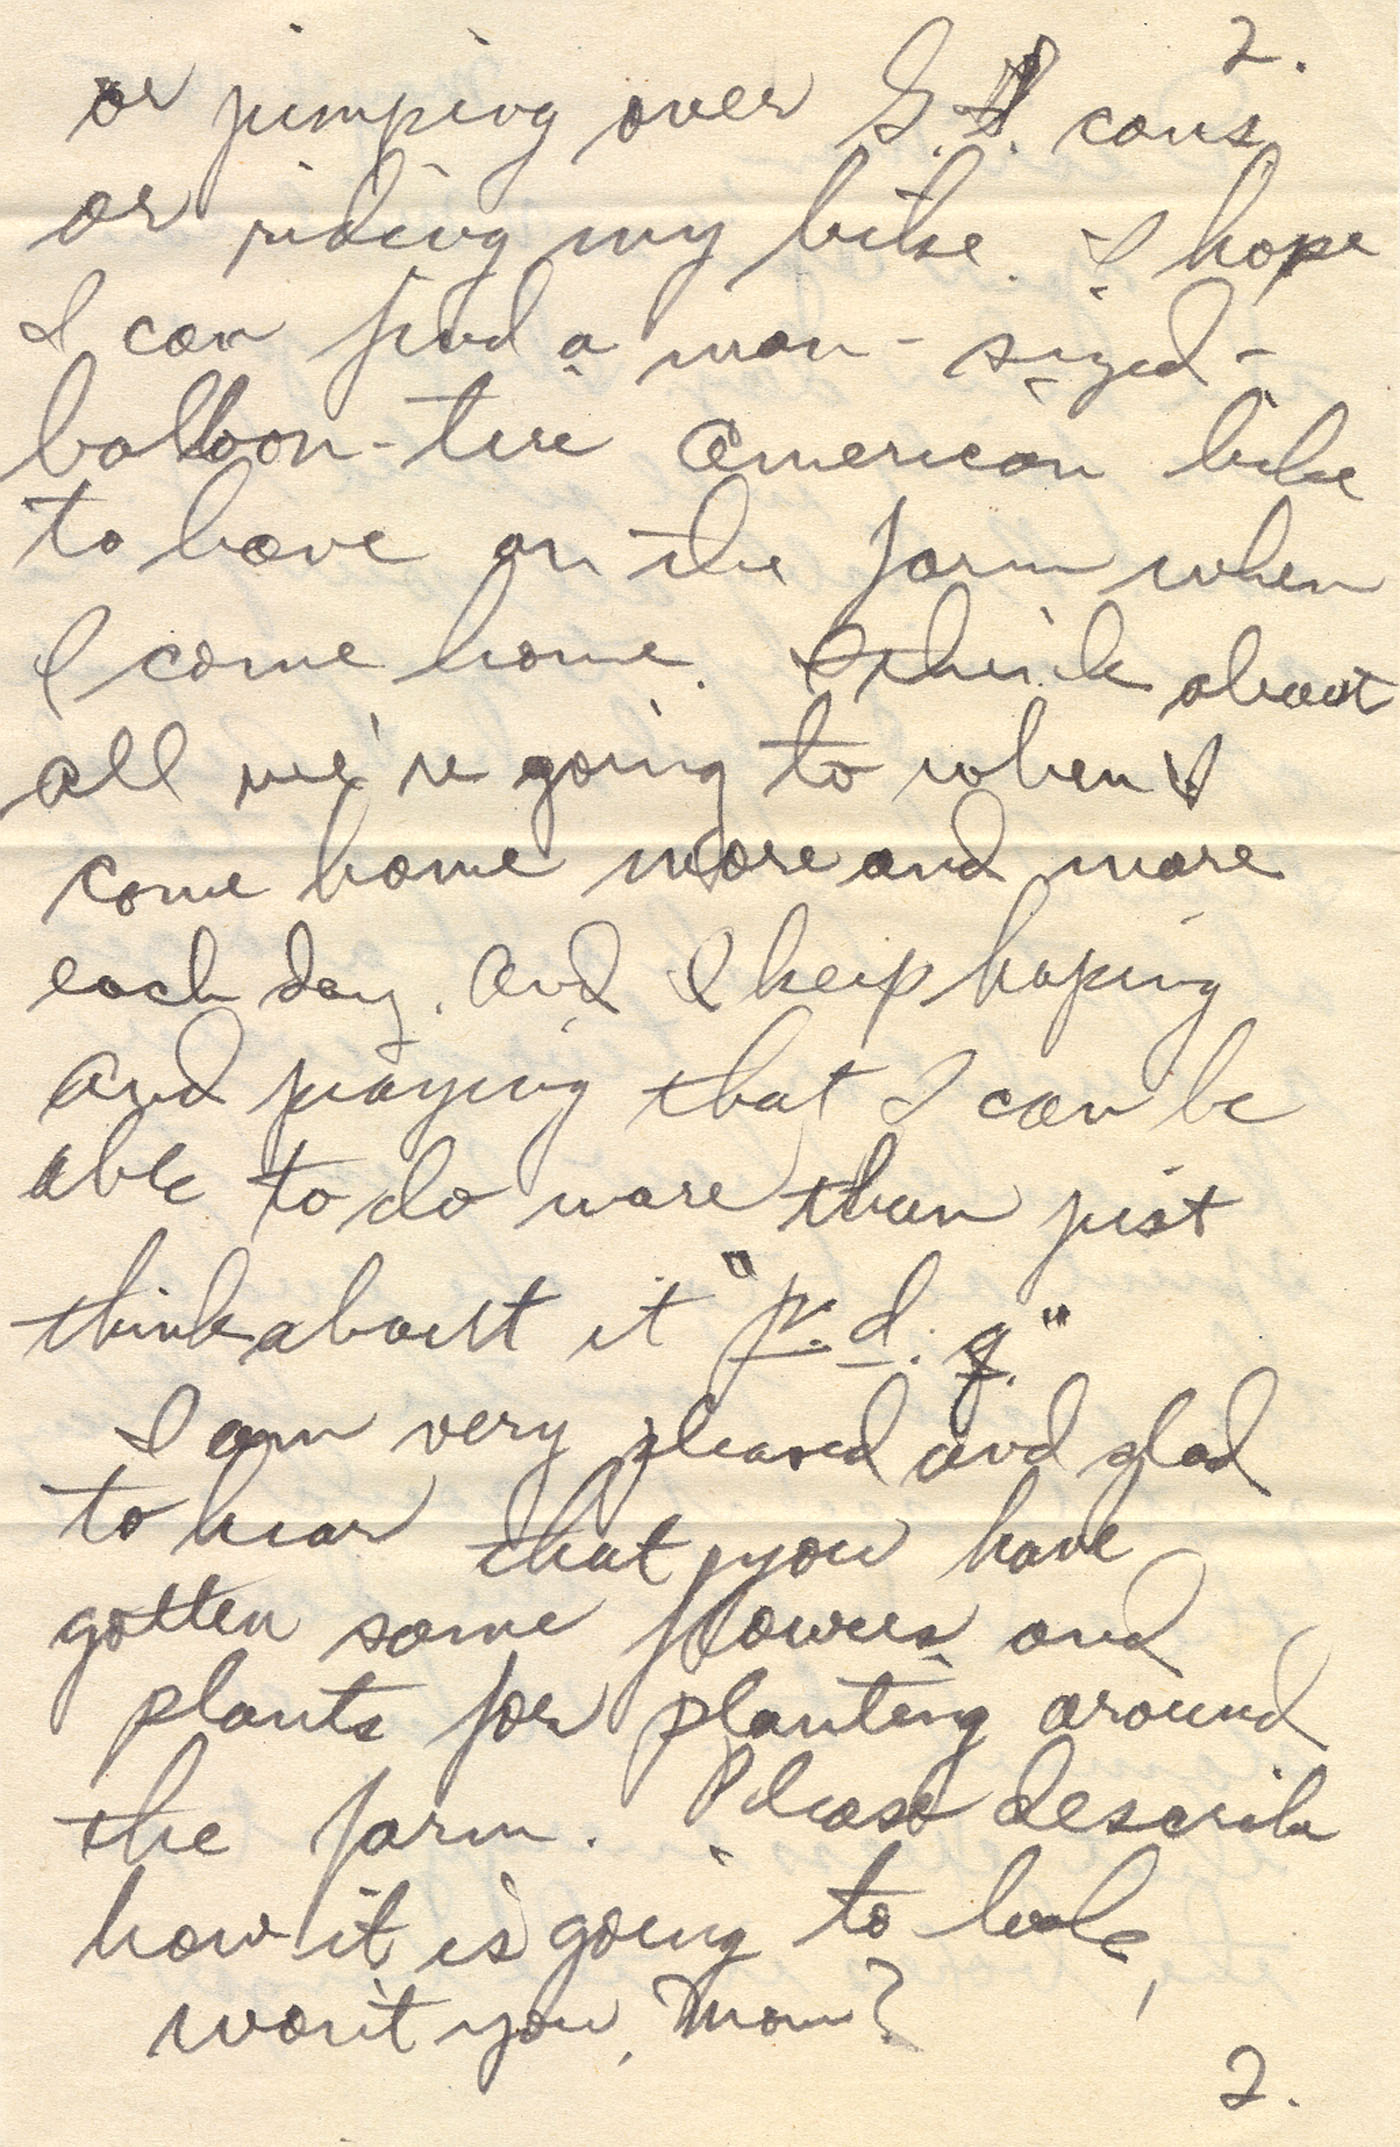 2.
or jumping over G.I. cans
or riding my bike. I hope
I can find a man-sized-
balloon-tire American bike
to have on the farm when
I come home. I think about
all we're going to when I
come home more and more
each day. And I keep hoping
and praying that I can be
able to do more than just
think about it "p.d.q."
I am very pleased and glad
to hear that you have
gotten some flowers and
plants for planting around
the farm. Please describe
how it is going to look,
won't you, Mom?
2.